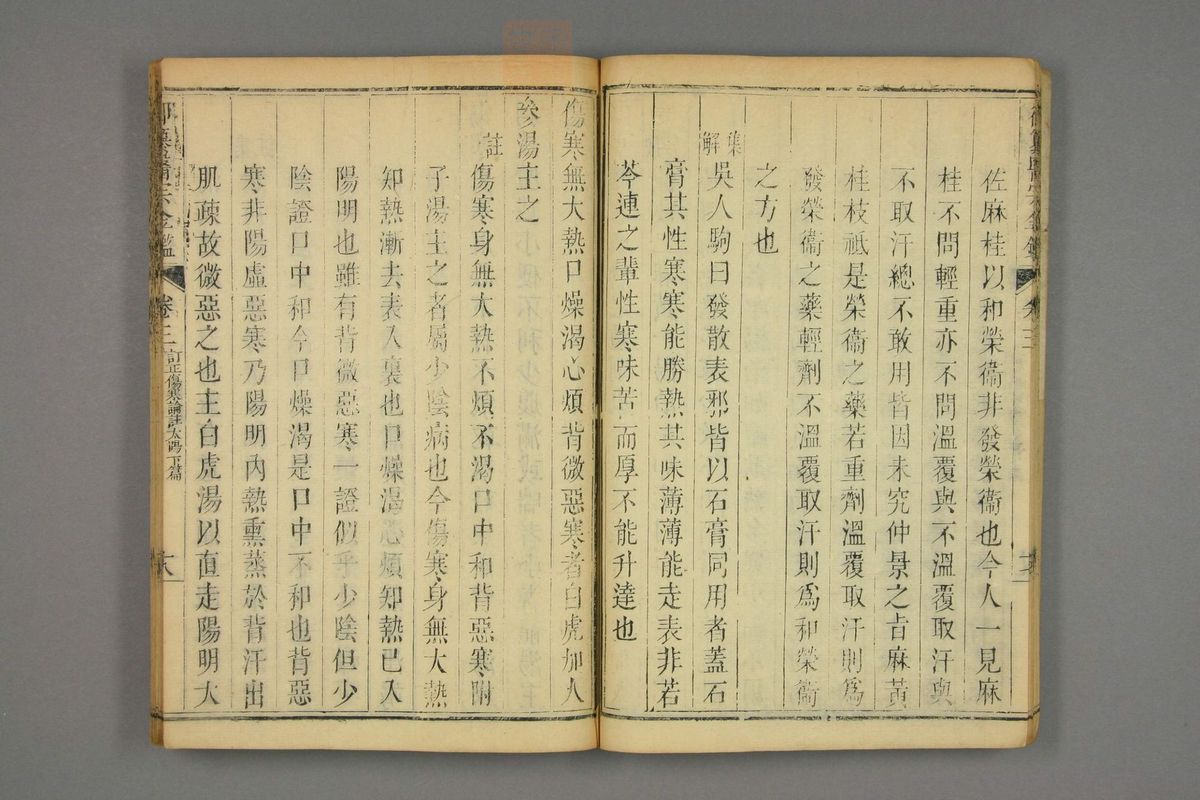 佐麻桂以和榮衞非發榮衞也今人一見麻
桂不問輕重亦不問溫覆與不溫覆取汗與
不取汗總不敢用皆因未究仲景之旨麻黃
桂枝祗是榮衞之藥若重劑溫覆取汗則爲
發榮衞之藥輕劑不溫覆取汗則爲和榮衞
之方也
集解
吳人駒曰發散表邪皆以石膏同用者蓋石
膏其性寒寒能勝熱其味薄薄能走表非若
芩連之輩性寒味苦而厚不能升達也
傷寒無大熱口燥渴心煩背微惡寒者白虎加人
參湯主之
註
傷寒身無大熱不煩不渴口中和背惡寒附
子湯主之者屬少陰病也今傷寒身無大熱
知熱漸去表入裏也口燥渴心煩知熱已入
陽明也雖有背微惡寒一證似乎少陰但少
陰證口中和今口燥渴是口中不和也背惡
寒非陽虛惡寒乃陽明內熱熏蒸於背汗出
肌疎故微惡之也主白虎湯以直走陽明大
御纂醫宗金鑑 卷三 訂正傷寒論註太陽下篇